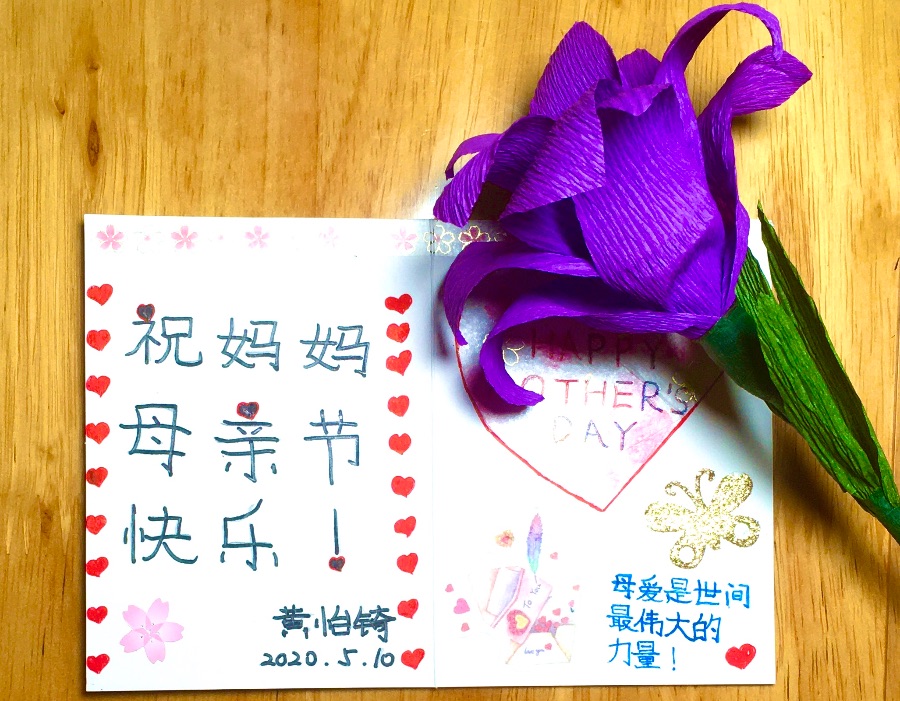 祝妈妈
母亲节
快乐！
黄怡锜
2020.5.10
HAPPY
OTHER'S
DAY
To You
母爱是世间
最伟大的
力量！